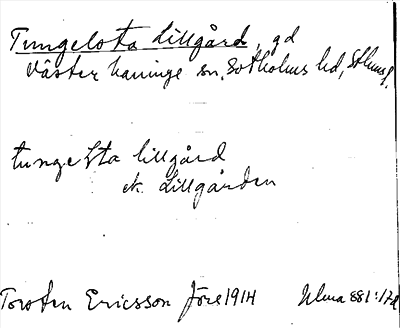 Tungelsta Lillgård, gd
Väster haninge sn, Sotholms hd, Sthms l.
tungelsta lillgård
ek. Lillgården
Torsten Ericsson före 1914 Ulma 881:17d